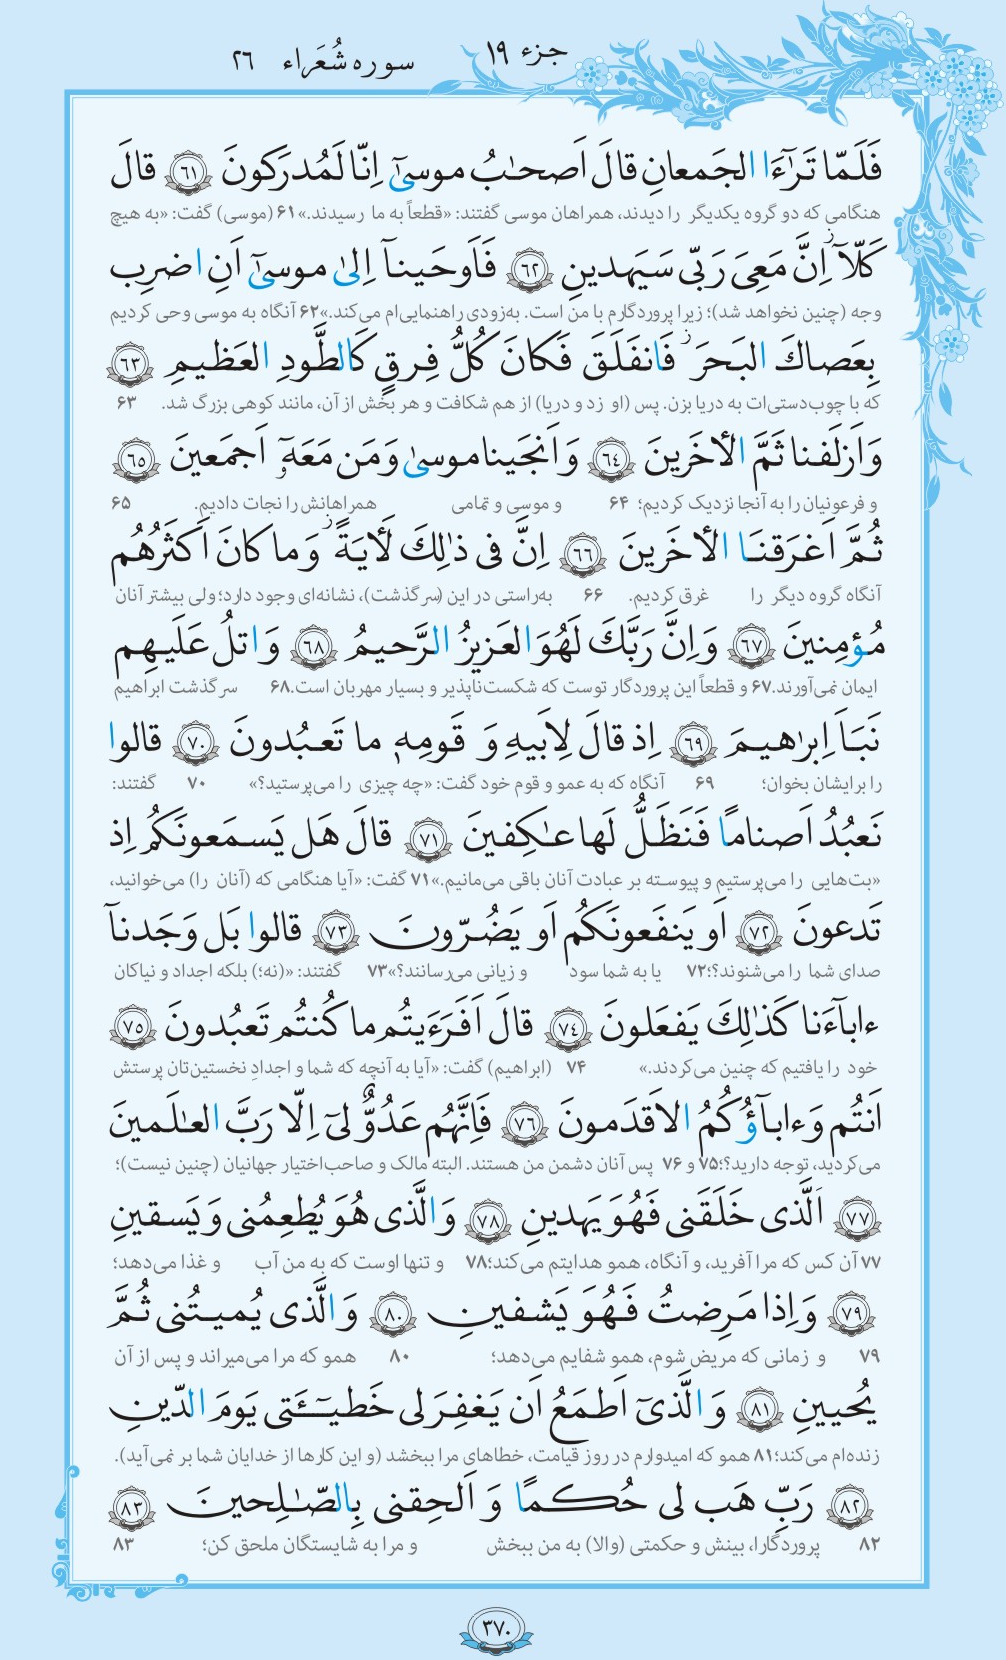 جزء ۱۹
سوره شُعَراء ۲۶
فَلَمّا تَرٰٓءَا الجَمعانِ قالَ اَصحٰبُ موسىٰٓ اِنّا لَمُدرَكونَ ﴿۶۱﴾ قالَ
هنگامی که دو گروه یکدیگر را دیدند، همراهان موسی گفتند: «قطعاً به ما رسیدند.» ۶۱ (موسی) گفت: «به هیچ
كَلّآ ۖ اِنَّ مَعِىَ رَبّى سَيَهدينِ ﴿۶۲﴾ فَاَوحَينآ اِلىٰ موسىٰٓ اَنِ اضرِب
وجه (چنین نخواهد شد)؛ زیرا پروردگارم با من است. به‌زودی راهنمایی‌ام می‌کند.» ۶۲ آنگاه به موسی وحی کردیم
بِعَصاكَ البَحرَ ۖ فَانفَلَقَ فَكانَ كُلُّ فِرقٍ كَالطَّودِ العَظيمِ ﴿۶۳﴾
که با چوب‌دستی‌ات به دریا بزن. پس (او زد و دریا) از هم شکافت و هر بخش از آن، مانند کوهی بزرگ شد. ۶۳
وَ اَزلَفنا ثَمَّ الأخَرينَ ﴿۶۴﴾ وَ اَنجَينا موسىٰ وَ مَن مَعَهٗٓ اَجمَعينَ ﴿۶۵﴾
و فرعونیان را به آنجا نزدیک کردیم؛ ۶۴ و موسی و تمامی همراهانش را نجات دادیم. ۶۵
ثُمَّ اَغرَقنَا الأخَرينَ ﴿۶۶﴾ اِنَّ فى ذٰلِكَ لَأيَةً ۖ وَ ما كانَ اَكثَرُهُم
آنگاه گروه دیگر را غرق کردیم. ۶۶ به‌راستی در این (سرگذشت)، نشانه‌ای وجود دارد؛ ولی بیشتر آنان
مُؤمِنينَ ﴿۶۷﴾ وَ اِنَّ رَبَّكَ لَهُوَ العَزيزُ الرَّحيمُ ﴿۶۸﴾ وَ اتلُ عَلَيهِم
ایمان نمی‌آورند. ۶۷ و قطعاً این پروردگار توست که شکست‌ناپذیر و بسیار مهربان است. ۶۸ سرگذشت ابراهیم
نَبَاَ اِبرٰهيمَ ﴿۶۹﴾ اِذ قالَ لِاَبيهِ وَ قَومِهٖ ما تَعبُدونَ ﴿۷۰﴾ قالوا
را برایشان بخوان؛ ۶۹ آنگاه که به عمو و قوم خود گفت: «چه چیزی را می‌پرستید؟» ۷۰ گفتند:
نَعبُدُ اَصنامًا فَنَظَلُّ لَها عٰكِفينَ ﴿۷۱﴾ قالَ هَل يَسمَعونَكُم اِذ
«بت‌هایی را می‌پرستیم و پیوسته بر عبادت آنان باقی می‌مانیم.» ۷۱ گفت: «آیا هنگامی که (آنان را) می‌خوانید،
تَدعونَ ﴿۷۲﴾ اَو يَنفَعونَكُم اَو يَضُرّونَ ﴿۷۳﴾ قالوا بَل وَجَدنآ
صدای شما را می‌شنوند؟؛ ۷۲ یا به شما سود و زیانی می‌رسانند؟» ۷۳ گفتند: «(نه؛) بلکه اجداد و نیاکان
ءابآءَنا كَذٰلِكَ يَفعَلونَ ﴿۷۴﴾ قالَ اَفَرَءَيتُم ما كُنتُم تَعبُدونَ ﴿۷۵﴾
خود را یافتیم که چنین می‌کردند.» ۷۴ (ابراهیم) گفت: «آیا به آنچه که شما و اجدادِ نخستین‌تان پرستش
اَنتُم وَ ءابآؤُكُمُ الاَقدَمونَ ﴿۷۶﴾ فَاِنَّهُم عَدُوٌّ لىٓ اِلّا رَبَّ العٰلَمينَ
می‌کردید، توجه دارید؟؛ ۷۵ و ۷۶ پس آنان دشمن من هستند. البته مالک و صاحب‌اختیار جهانیان (چنین نیست)؛
﴿۷۷﴾ اَلَّذى خَلَقَنى فَهُوَ يَهدينِ ﴿۷۸﴾ وَ الَّذى هُوَ يُطعِمُنى وَ يَسقينِ
۷۷ آن کس که مرا آفرید، و آنگاه، همو هدایتم می‌کند؛ ۷۸ و تنها اوست که به من آب و غذا می‌دهد؛
﴿۷۹﴾ وَ اِذا مَرِضتُ فَهُوَ يَشفينِ ﴿۸۰﴾ وَ الَّذى يُميتُنى ثُمَّ
۷۹ و زمانی که مریض شوم، همو شفایم می‌دهد؛ ۸۰ همو که مرا می‌میراند و پس از آن
يُحيينِ ﴿۸۱﴾ وَ الَّذىٓ اَطمَعُ اَن يَغفِرَ لى خَطيـَٔتى يَومَ الدّينِ
زنده‌ام می‌کند؛ ۸۱ همو که امیدوارم در روز قیامت، خطاهای مرا ببخشد (و این کارها از خدایان شما بر نمی‌آید).
﴿۸۲﴾ رَبِّ هَب لى حُكمًا وَ اَلحِقنى بِالصّٰلِحينَ ﴿۸۳﴾
۸۲ پروردگارا، بینش و حکمتی (والا) به من ببخش و مرا به شایستگان ملحق کن؛ ۸۳
۳۷۰